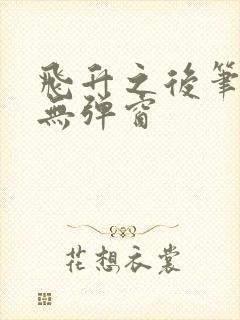 飛升之後筆
無彈窗
花想衣裳